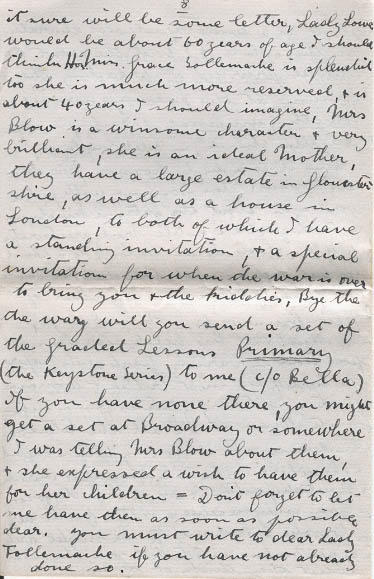 8
it sure will be some letter, Lady Lowe
would be about 60 years of age I should
think Hon. Mrs. Grace Tollemache is splendid
too she is much more reserved, & is
about 40 years I should imagine, Mrs
Blow is a winsome character & very
brilliant, she is an ideal Mother,
they have a large estate in Gloucester
shire, as well as a house in
London, to both of which I have
a standing invitation, & a special
invitation for when the war is over
to bring you & the kiddies, Bye the
the way will you send a set of
the Graded Lessons Primary
(the Keystone Series) to me (c/o Bella)
If you have none there you might
get a set at Broadway or somewhere
I was telling Mrs Blow about them,
& she expressed a wish to have them
for her children = Dont forget to let
me have them as soon as possible
dear. you must write to dear Lady
Tollemache if you have not already
done so.